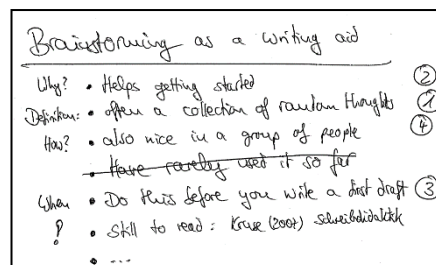 Brainstorming as a writing aid
Why? • Helps getting started ②
Definition: • often a collection of random thoughts ①
How? • also nice in a group of people ④
• Have rarely used it so far
When • Do this before you write a first draft ③
? • Still to read: Kruse (2007) Schreibdidaktik
• ...